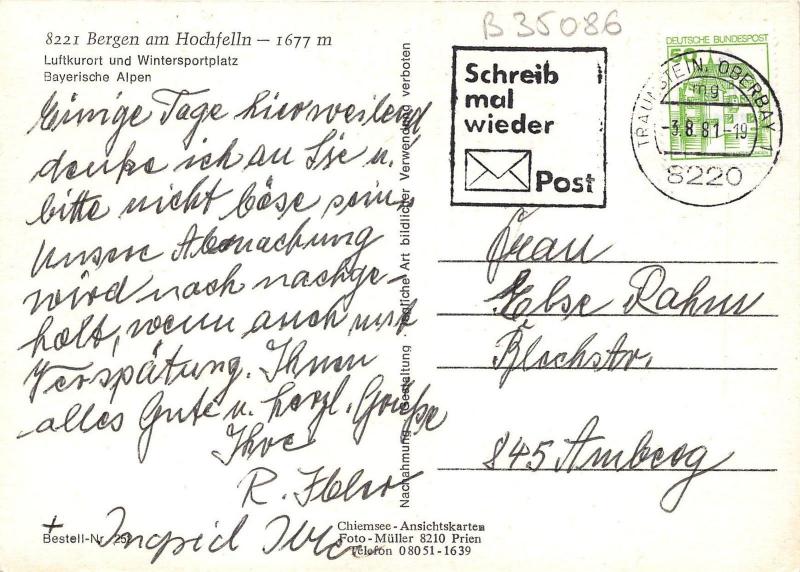 B 35086
8221 Bergen am Hochfelln — 1677 m
Luftkurort und Wintersportplatz
Bayerische Alpen
Einige Tage hierweilend
denke ich an Sie u.
bitte nicht böse sein.
Unsere Abmachung
wird noch nachge-
holt, wenn auch mit
Verspätung. Ihnen
alles Gute u. herzl. Grüße
Ihre
R.
+ Ingrid
Bestell-Nr.
Chiemsee-Ansichtskarten
Foto-Müller 8210 Prien
Telefon 08051-1639
Nachahmung der Gestaltung jegliche Art bildlicher Verwendung verboten
Schreib
mal
wieder
Post
DEUTSCHE BUNDESPOST
50
TRAUNSTEIN, OBERBAY 1
mg
-3.8.81-19
8220
Frau
Else Rahm
Blochstr.
845 Amberg